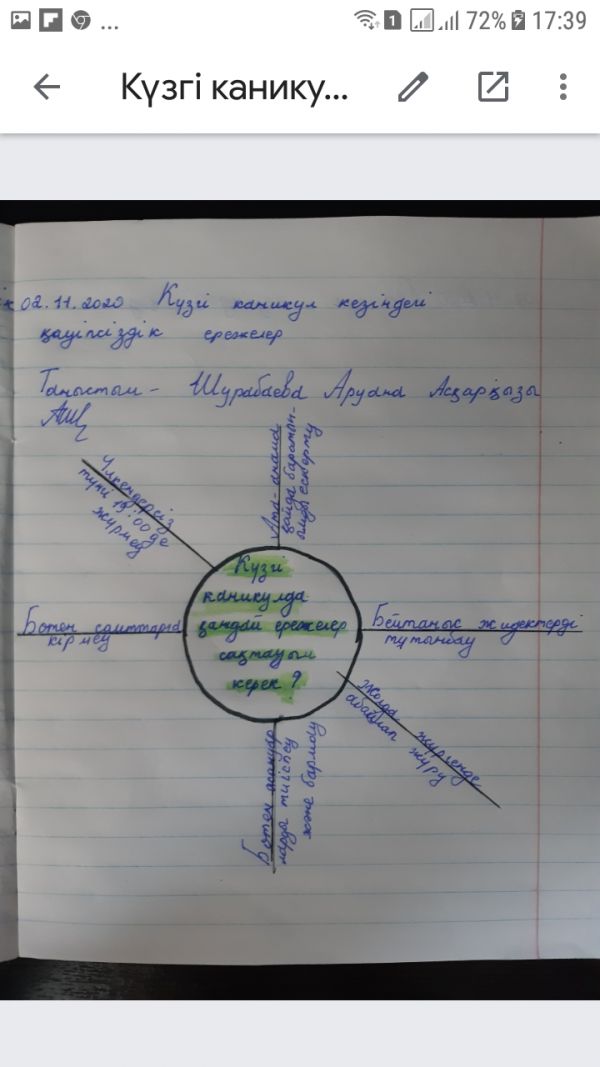 ... 1 72% 17:39
Күзгі канику...
02.11.2020 Күзгі каникул кезіндегі
қауіпсіздік ережелер
Таныстым - Шурабаева Аруана Асқарқызы
Үлкендерсіз
түні 19:00 де
жүрмеу
Ата-анама
қайда баратын-
ымды ескерту
Бөтен сайттарға
кірмеу
Күзгі
каникулда
қандай ережелер
сақтауым
керек ?
Бейтаныс жидектерді
тұтынбау
Жолда жүргенде
абайлап жүру
Бөтен
нарды тиіспеу
және бармау